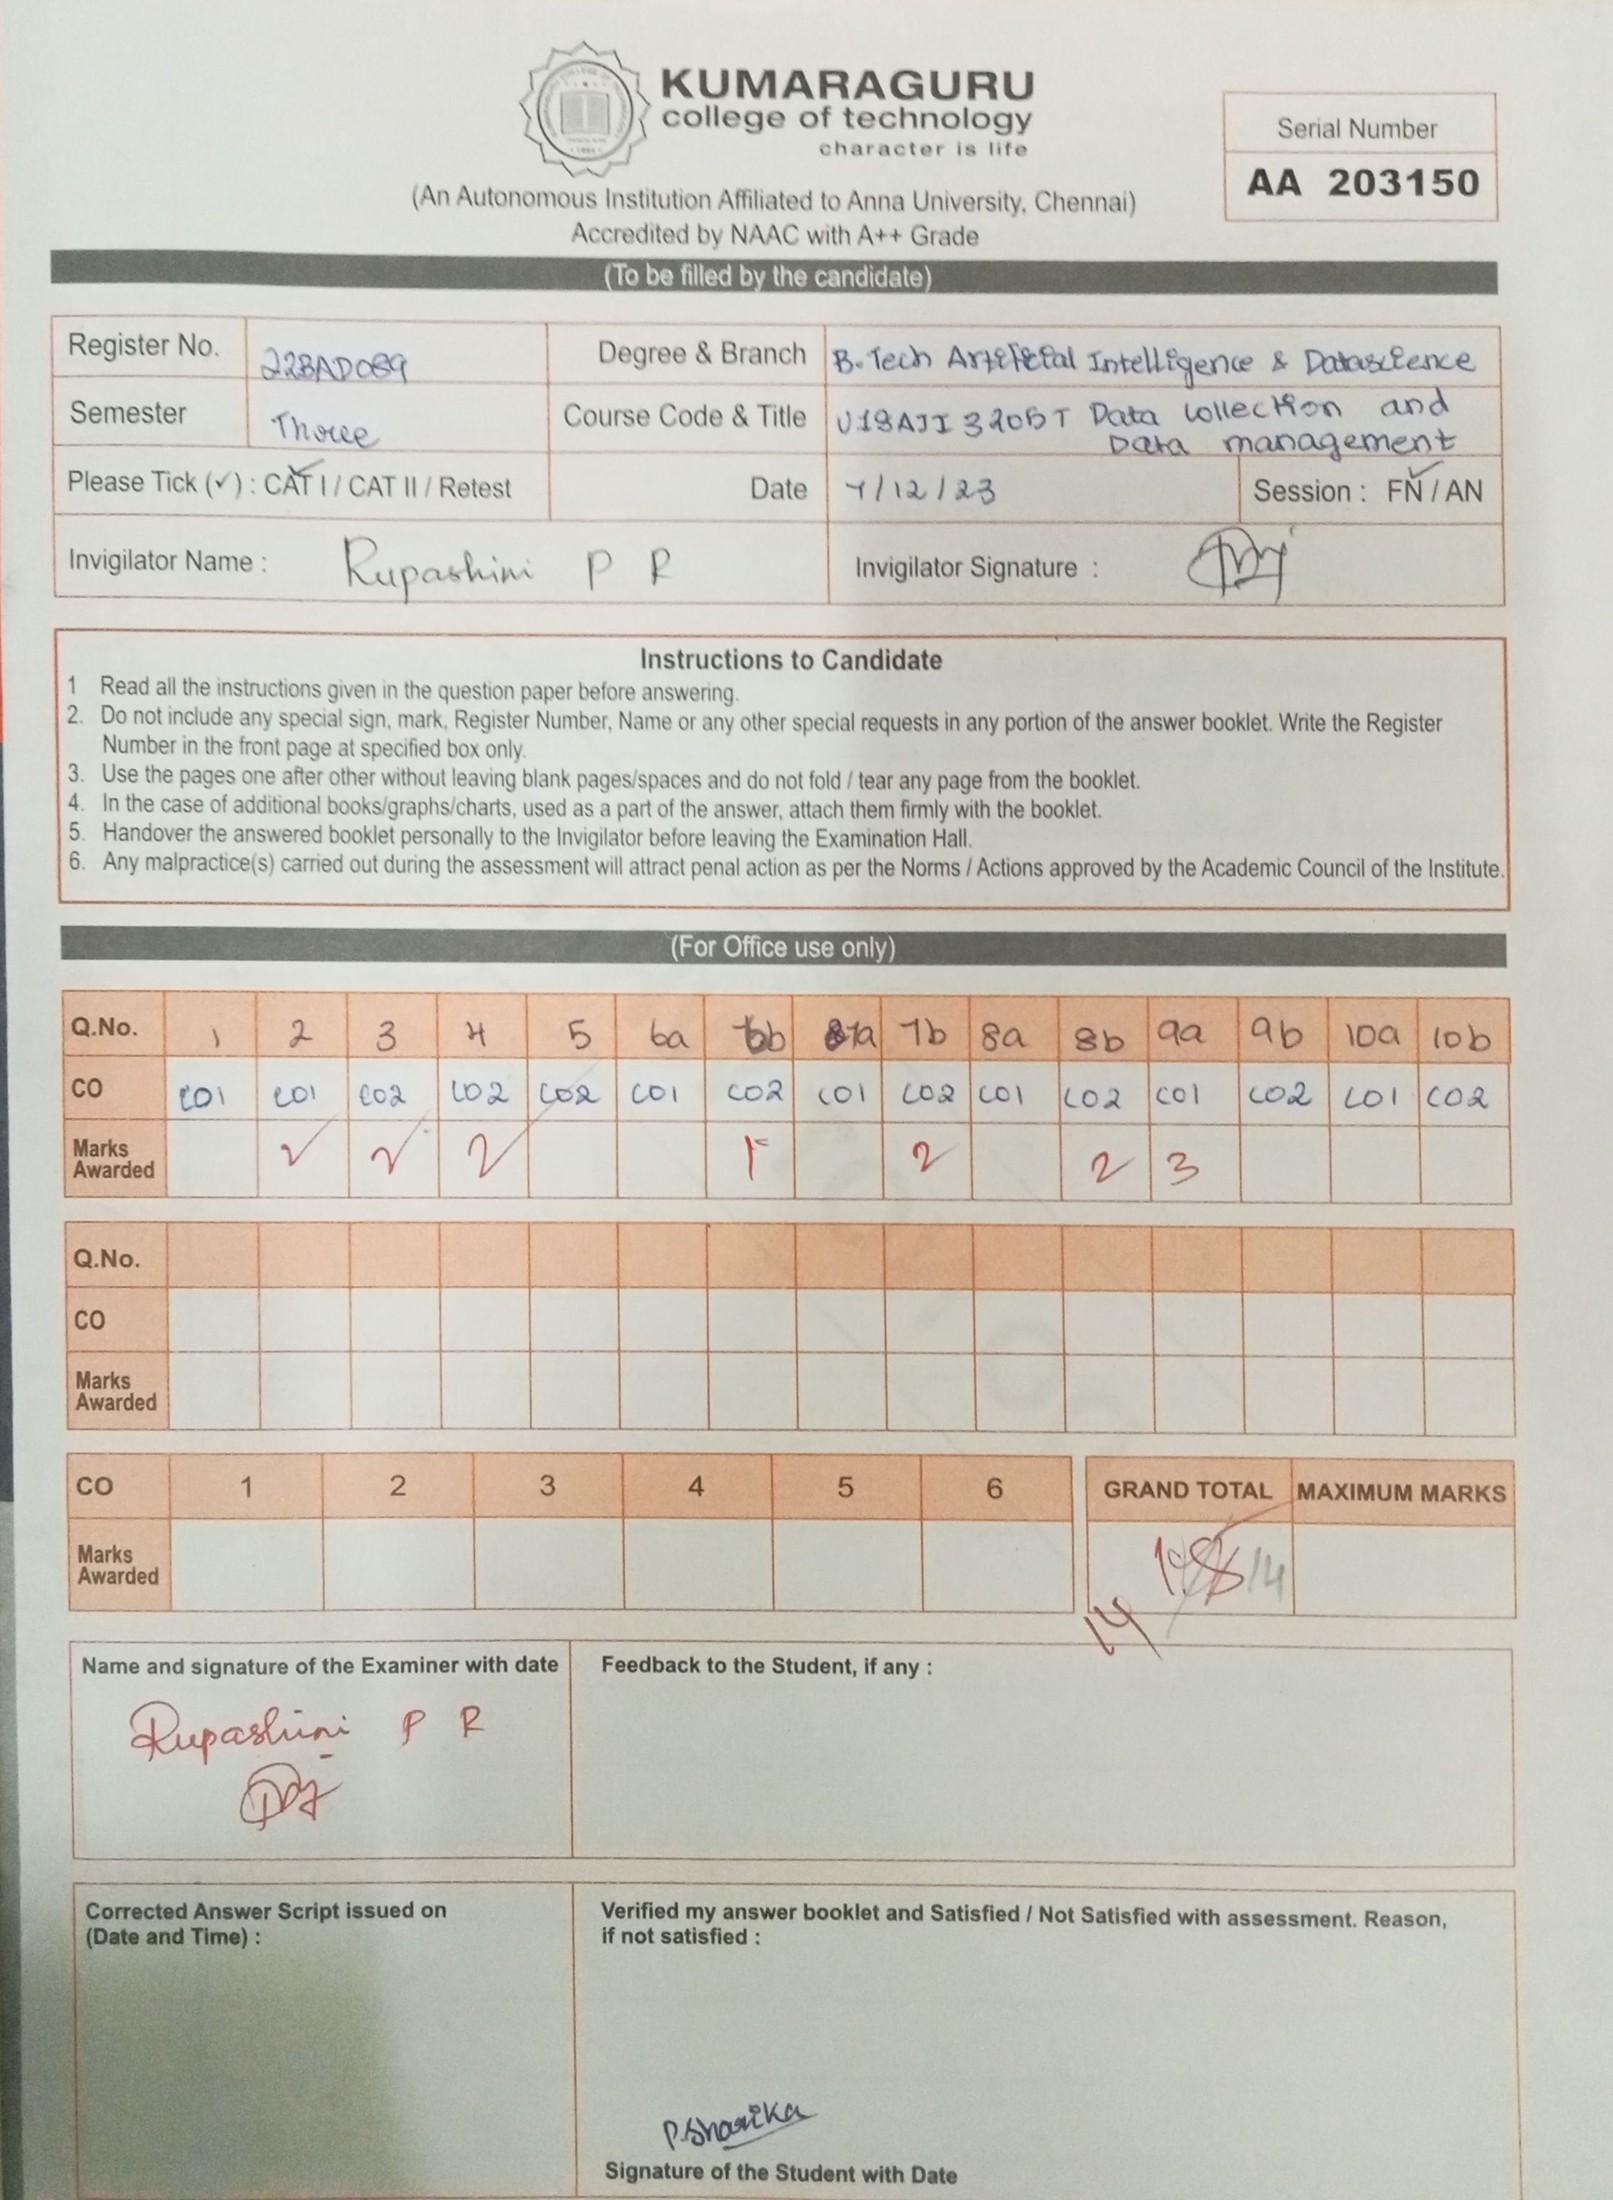 KUMARAGURU
college of technology
character is life
(An Autonomous Institution Affiliated to Anna University, Chennai)
Accredited by NAAC with A++ Grade
Serial Number
AA 203150
(To be filled by the candidate)
Register No. 22BAD089
Degree & Branch B.Tech Artificial Intelligence & Datascience
Semester Three
Course Code & Title Data collection and
Data management
Please Tick (✓) : CAT I / CAT II / Retest
Date 7/12/23
Session : FN / AN
Invigilator Name : Rupashini P R
Invigilator Signature :
Instructions to Candidate
1 Read all the instructions given in the question paper before answering.
2. Do not include any special sign, mark, Register Number, Name or any other special requests in any portion of the answer booklet. Write the Register
Number in the front page at specified box only.
3. Use the pages one after other without leaving blank pages/spaces and do not fold / tear any page from the booklet.
4. In the case of additional books/graphs/charts, used as a part of the answer, attach them firmly with the booklet.
5. Handover the answered booklet personally to the Invigilator before leaving the Examination Hall.
6. Any malpractice(s) carried out during the assessment will attract penal action as per the Norms / Actions approved by the Academic Council of the Institute.
(For Office use only)
Q.No. 1 2 3 4 5 6a 6b 7a 7b 8a 8b 9a 9b 10a 10b
CO CO1 CO1 CO2 CO2 CO2 CO1 CO2 CO1 CO2 CO1 CO2 CO1 CO2 CO1 CO2
Marks
Awarded 2 2 2 1 2 2 3
Q.No.
CO
Marks
Awarded
CO 1 2 3 4 5 6
Marks
Awarded
GRAND TOTAL MAXIMUM MARKS
14
14
Name and signature of the Examiner with date
Rupashini P R
Feedback to the Student, if any :
Corrected Answer Script issued on
(Date and Time) :
Verified my answer booklet and Satisfied / Not Satisfied with assessment. Reason,
if not satisfied :
P.Sharika
Signature of the Student with Date